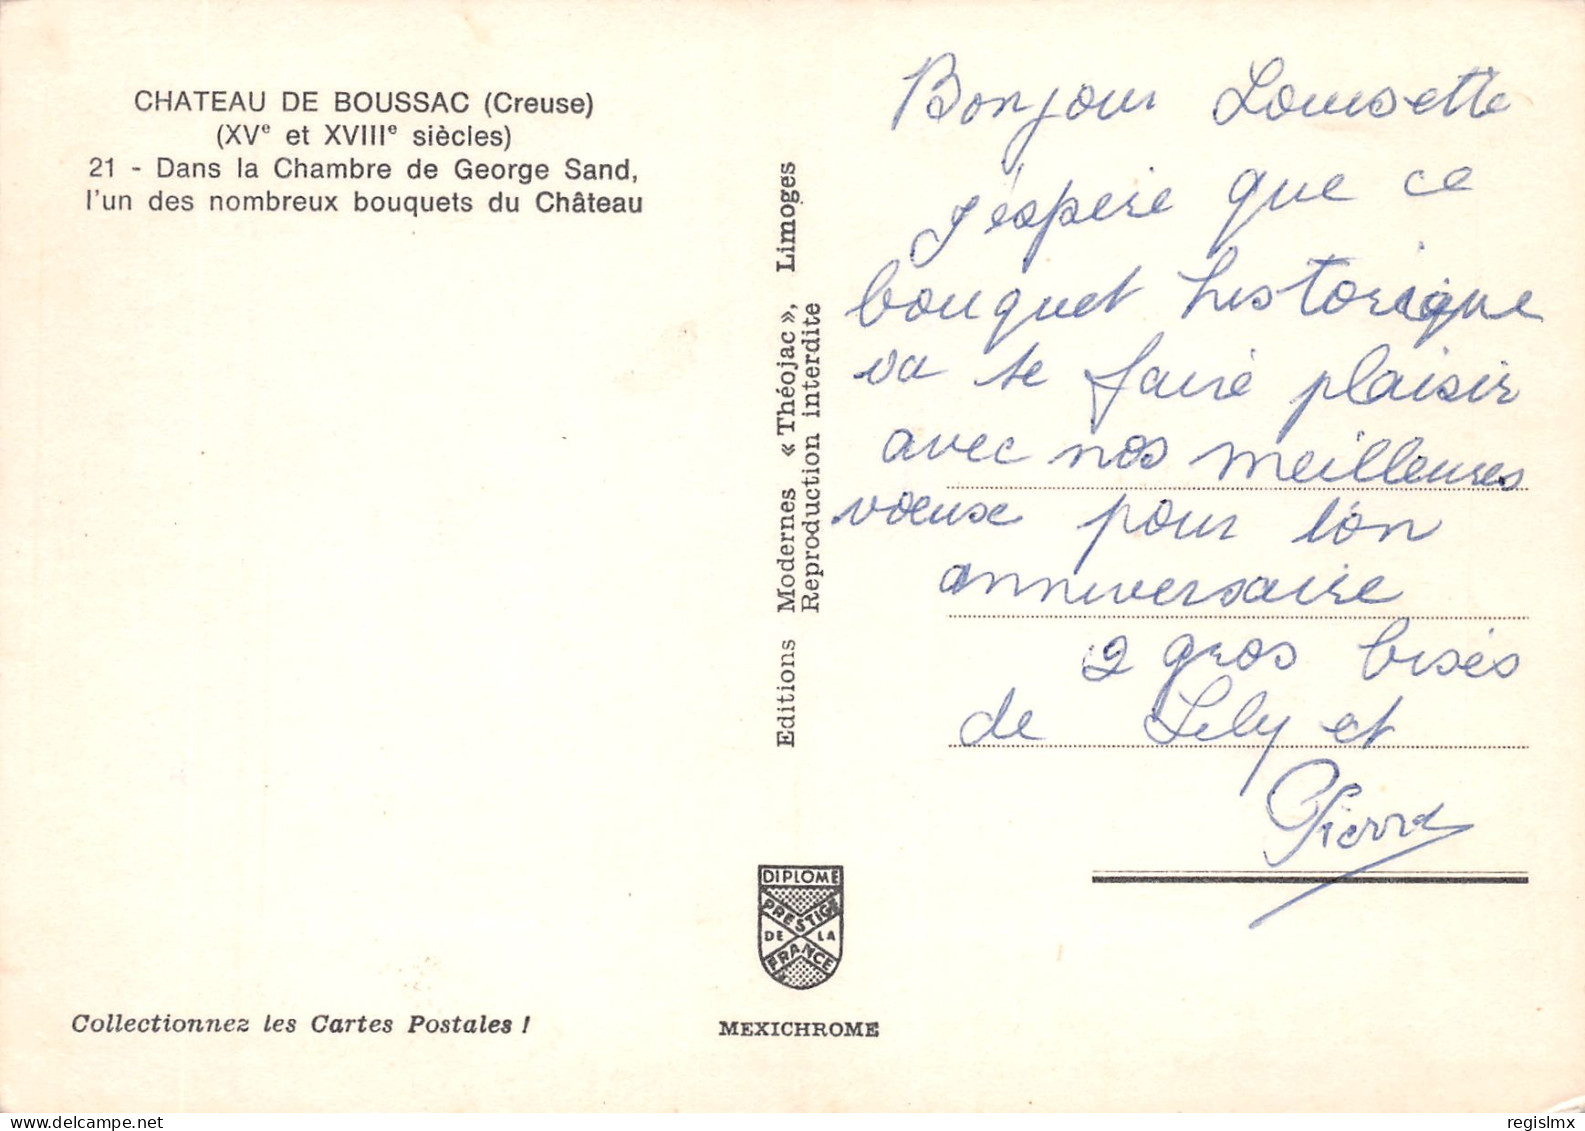 CHATEAU DE BOUSSAC (Creuse)
(XVe et XVIIIe siècles)
21 - Dans la Chambre de George Sand,
l'un des nombreux bouquets du Château
Collectionnez les Cartes Postales !
Editions Modernes « Théojac », Limoges
Reproduction interdite
DIPLOME
PRESTIGE
DE LA
FRANCE
MEXICHROME
Bonjour Lousette
j'éspère que ce
bouquet historique
va te faire plaisir
avec nos meilleures
voeux pour ton
anniversaire
2 gros bisés
de Lily et
Pierre
regislmx
delcampe.net